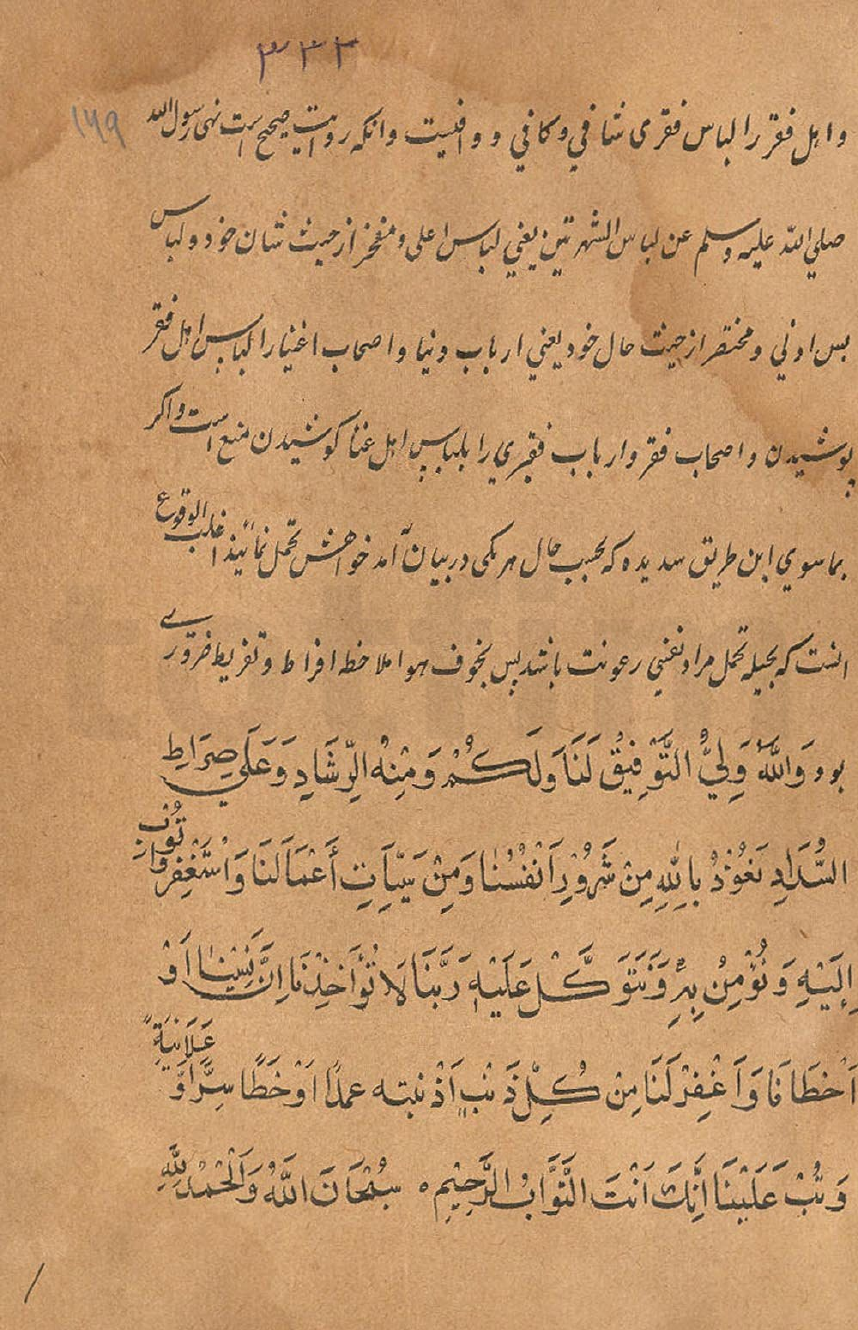 ۳۳۲
۱۶۹
و اهل فقر را لباس فقری شافي و کافي و وافیست وانکه روایت صحیح است نهی رسول الله
صلي الله علیه وسلم عن لباس الشهرتین یعني لباس اعلی و مفخر از حیث شان خود و لباس
بس ادني و مختصر از حیث حال خود یعني ارباب دنیا و اصحاب اغنیا را لباس اهل فقر
پوشیدن و اصحاب فقر و ارباب فقیري را بلباس اهل غنا کوشیدن منع است و اکر
بماسوي این طریق سدیده که بحسب حال هر یکی در بیان آمد خواهش تحمل نمائیند اغلب الوقوع
انست که بحیله تحمل مراد نفسي رعونت باشد پس بخوف هوا ملاحظه افراط و تفریط ضرورے
بود وَاللّٰهُ وَلِيُّ التَّوْفِيْقِ لَنَا وَلَكُمْ وَمِنْهُ الرِّشَادِ وَعَلَي صِرَاطِ
السُّدَادِ نَعُوْذُ بِاللّٰهِ مِنْ شَرُوْرِ اَنْفُسِنَا وَمِنْ سَيِّاٰتِ أَعْمَالَنَا وَاسْتَغْفِرُ وَاَتُوْبُ
اِلَيْهِ وَنُؤْمِنُ بِهِ وَنَتَوَكَّلْ عَلَيْهِ رَبَّنَا لَا تُؤَاخِذْنَا اِنْ نَسِيْنَا اَوْ
اَخْطَانَا وَاَغْفِرْ لَنَا مِنْ كُلِّ ذَنْبٍ اَذْنبته عمدًا اَوْ خَطًا سِرًّا وَّ عَلَانِيَةً
وَتُبْ عَلَيْنَا اِنَّكَ اَنْتَ التَّوَّابُ الرَّحِيْمِ ه سُبْحَانَ اللّٰهُ وَالْحَمْدُ لِلّٰهِ